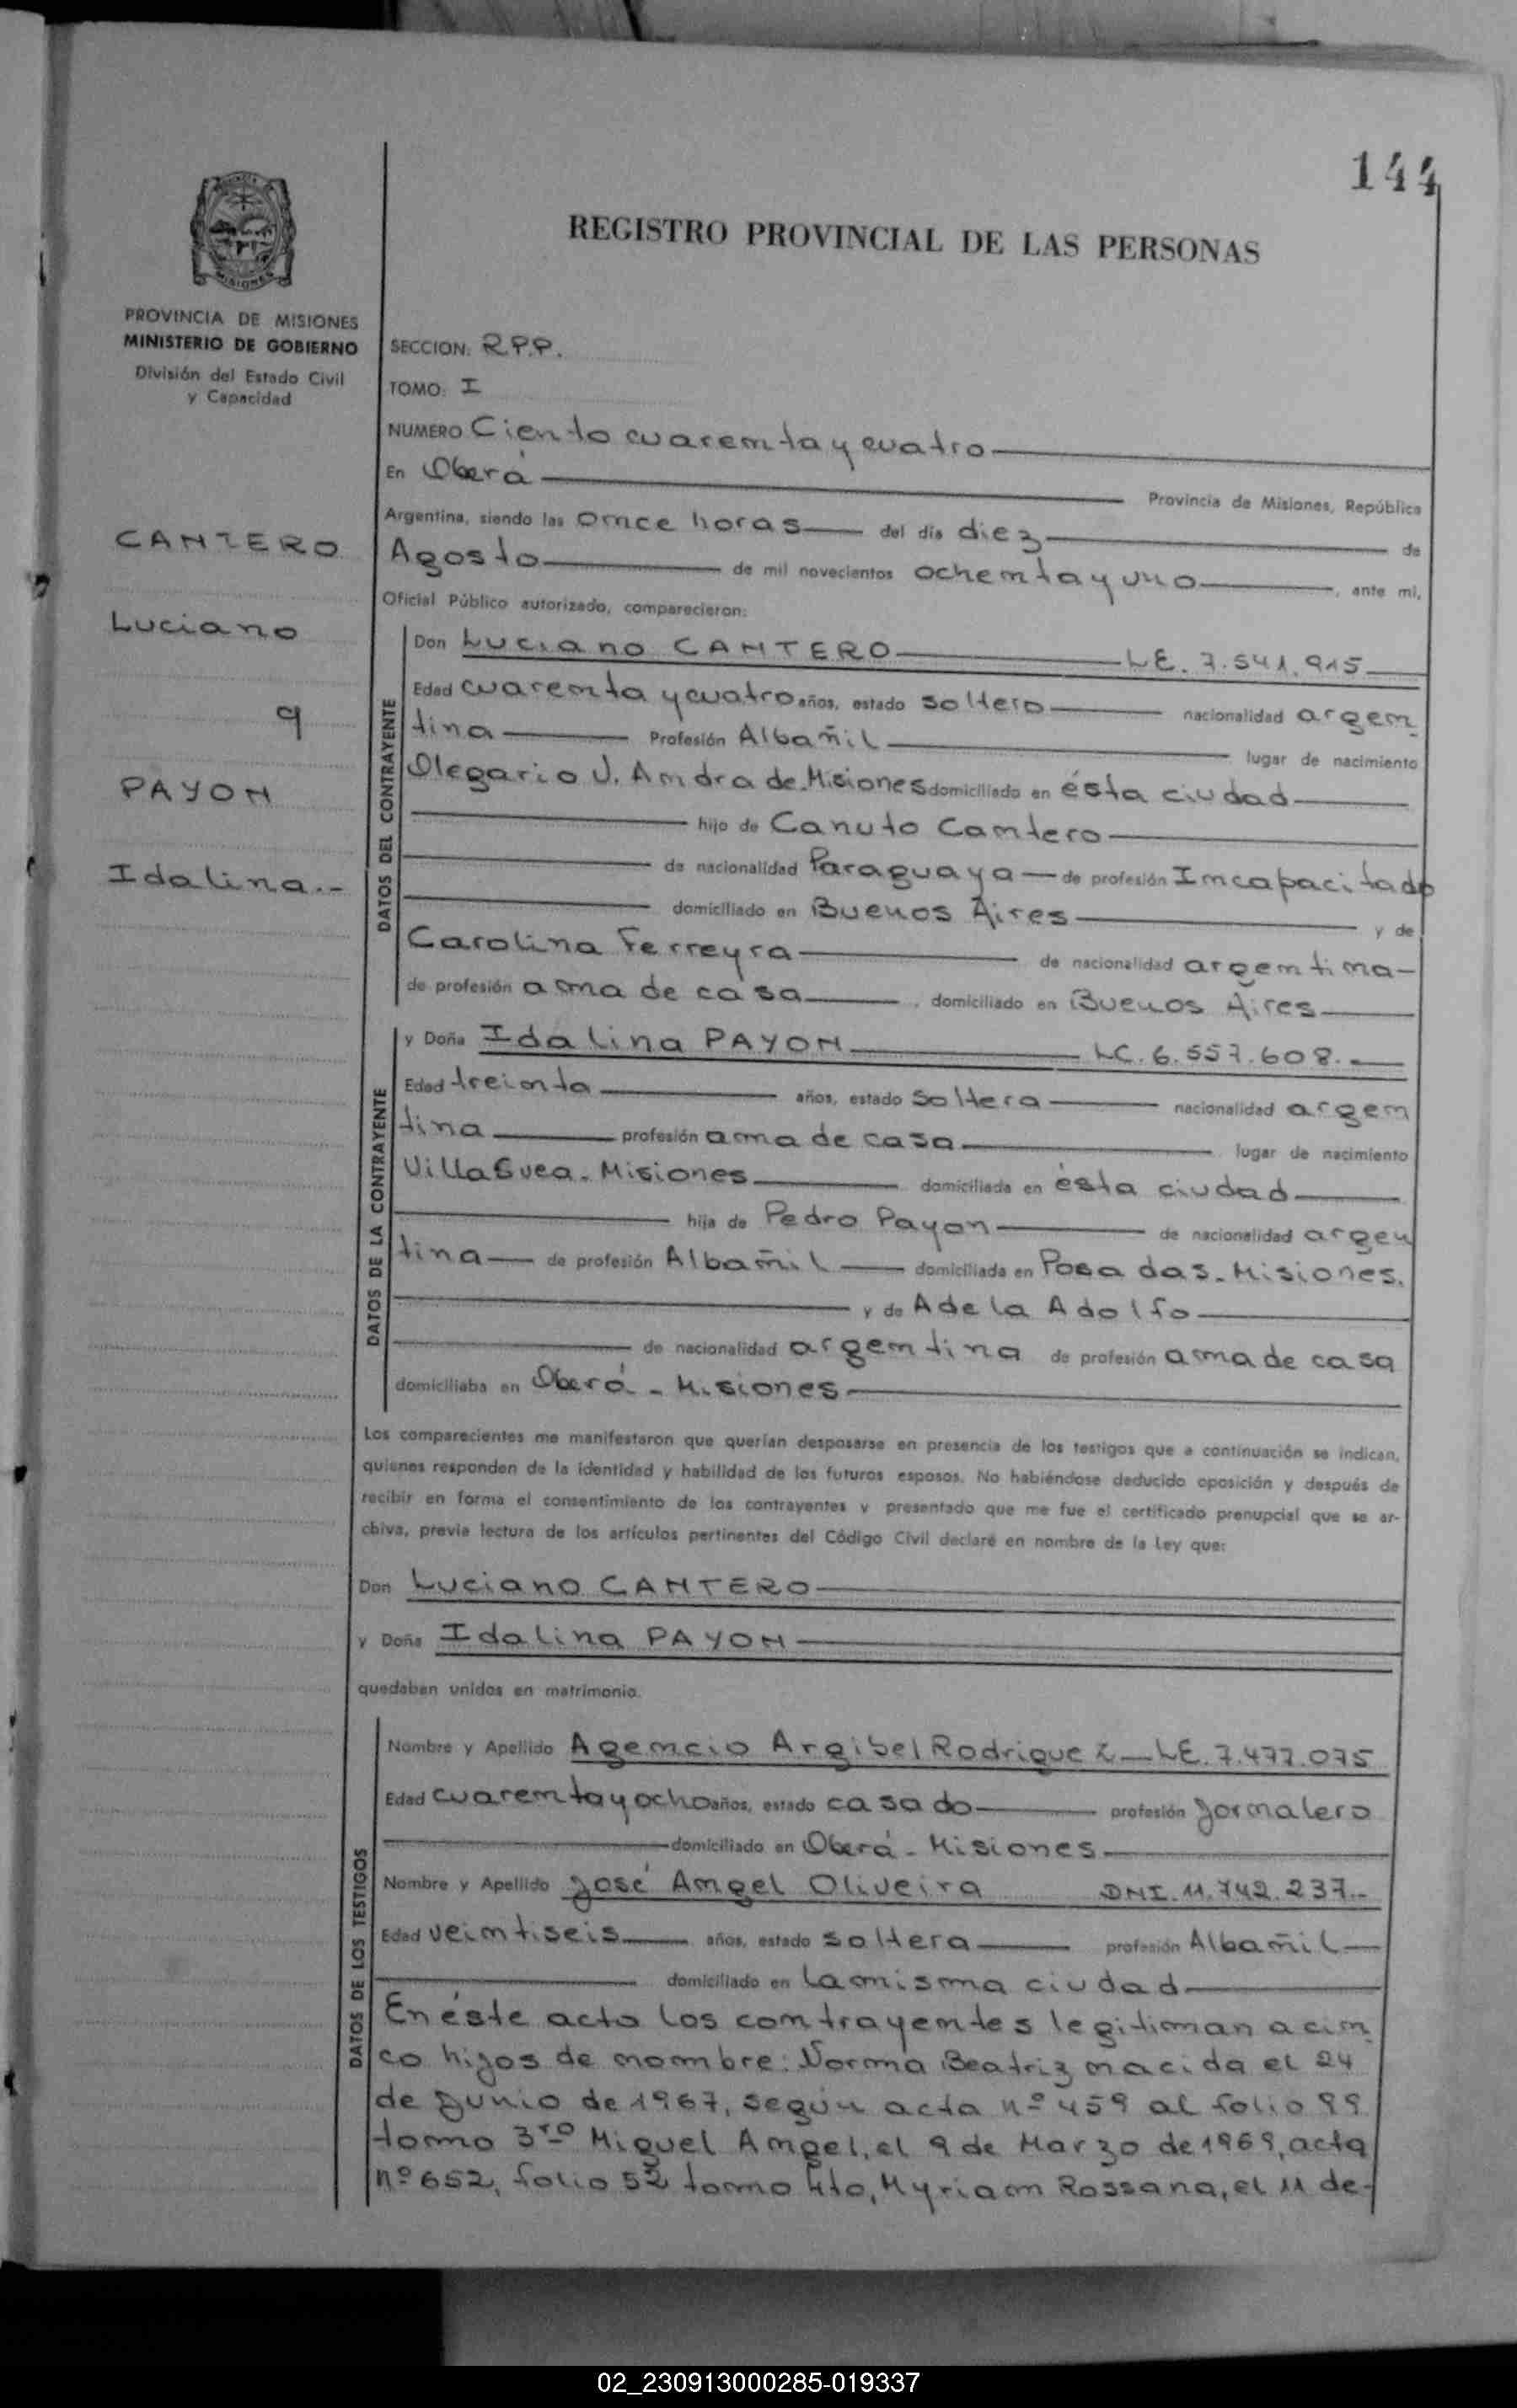 144
REGISTRO PROVINCIAL DE LAS PERSONAS
MISIONES
PROVINCIA DE MISIONES
MINISTERIO DE GOBIERNO
División del Estado Civil
y Capacidad
CANTERO
Luciano
y
PAYON
Idalina.-
SECCION: R.P.P.
TOMO: I
NUMERO Ciento cuarenta y cuatro
En Oberá Provincia de Misiones, República
Argentina, siendo las once horas del día diez de
Agosto de mil novecientos ochenta y uno, ante mi,
Oficial Público autorizado, comparecieron:
DATOS DEL CONTRAYENTE
Don Luciano CANTERO LE. 7.541.915
Edad cuarenta y cuatro años, estado soltero nacionalidad argen-
tina Profesión Albañil lugar de nacimiento
Olegario V. Andra de.Misiones domiciliado en ésta ciudad
hijo de Canuto Cantero
de nacionalidad Paraguaya de profesión Incapacitado
domiciliado en Buenos Aires y de
Carolina Ferreyra de nacionalidad argentina
de profesión ama de casa, domiciliado en Buenos Aires
DATOS DE LA CONTRAYENTE
y Doña Idalina PAYON LC. 6.557.608.-
Edad treinta años, estado soltera nacionalidad argen
tina profesión ama de casa lugar de nacimiento
Villa Svea. Misiones domiciliada en ésta ciudad
hija de Pedro Payon de nacionalidad argen
tina de profesión Albañil domiciliada en Posadas. Misiones.
y de Adela Adolfo
de nacionalidad argentina de profesión ama de casa
domiciliaba en Oberá - Misiones
Los comparecientes me manifestaron que querían desposarse en presencia de los testigos que a continuación se indican,
quienes responden de la identidad y habilidad de los futuros esposos. No habiéndose deducido oposición y después de
recibir en forma el consentimiento de los contrayentes y presentado que me fue el certificado prenupcial que se ar-
chiva, previa lectura de los artículos pertinentes del Código Civil declaré en nombre de la Ley que:
Don Luciano CANTERO
y Doña Idalina PAYON
quedaban unidos en matrimonio.
DATOS DE LOS TESTIGOS
Nombre y Apellido Agencio Argibel Rodriguez LE. 7.477.075
Edad cuarenta y ocho años, estado casado profesión Jornalero
domiciliado en Oberá - Misiones
Nombre y Apellido José Angel Oliveira DNI. 11.742.237.-
Edad veintiseis años, estado soltera profesión Albañil
domiciliado en la misma ciudad
En éste acto los contrayentes legitiman a cin-
co hijos de nombre: Norma Beatriz nacida el 24
de Junio de 1967, según acta nº 459 al folio 99
tomo 3ro Miguel Angel, el 9 de Marzo de 1969, acta
nº 652, folio 52 tomo 4to, Myriam Rossana, el 11 de-
02_230913000285-019337